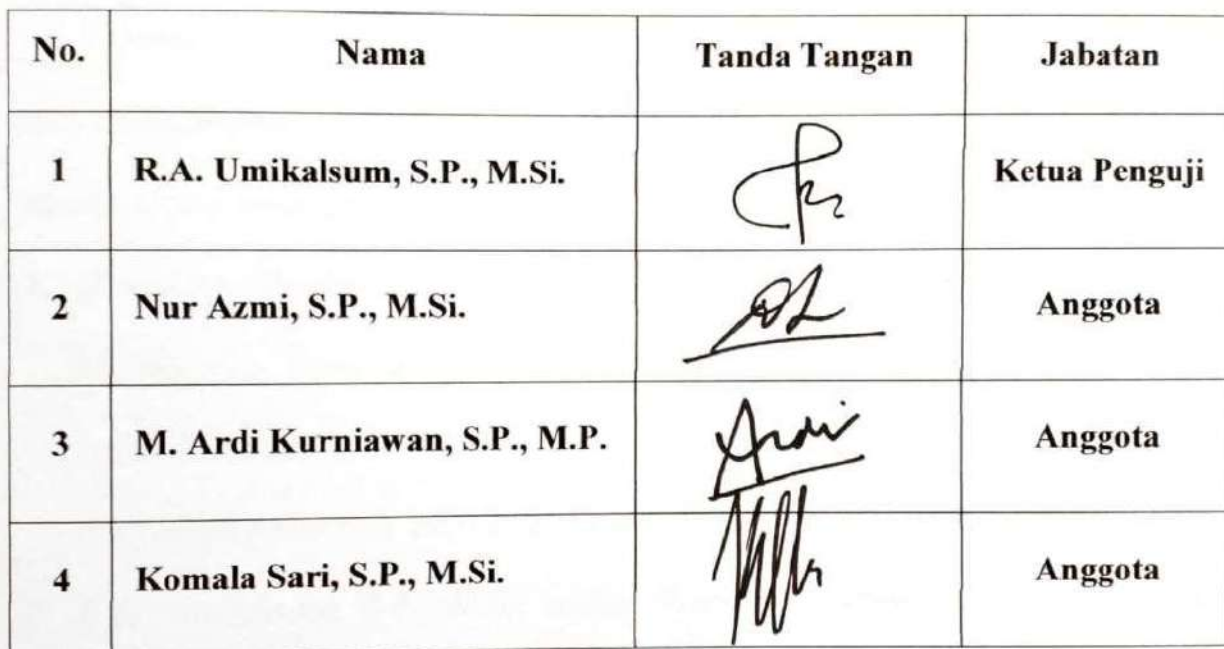 No. Nama Tanda Tangan Jabatan
1 R.A. Umikalsum, S.P., M.Si. Ketua Penguji
2 Nur Azmi, S.P., M.Si. Anggota
3 M. Ardi Kurniawan, S.P., M.P. Ardi Anggota
4 Komala Sari, S.P., M.Si. Anggota